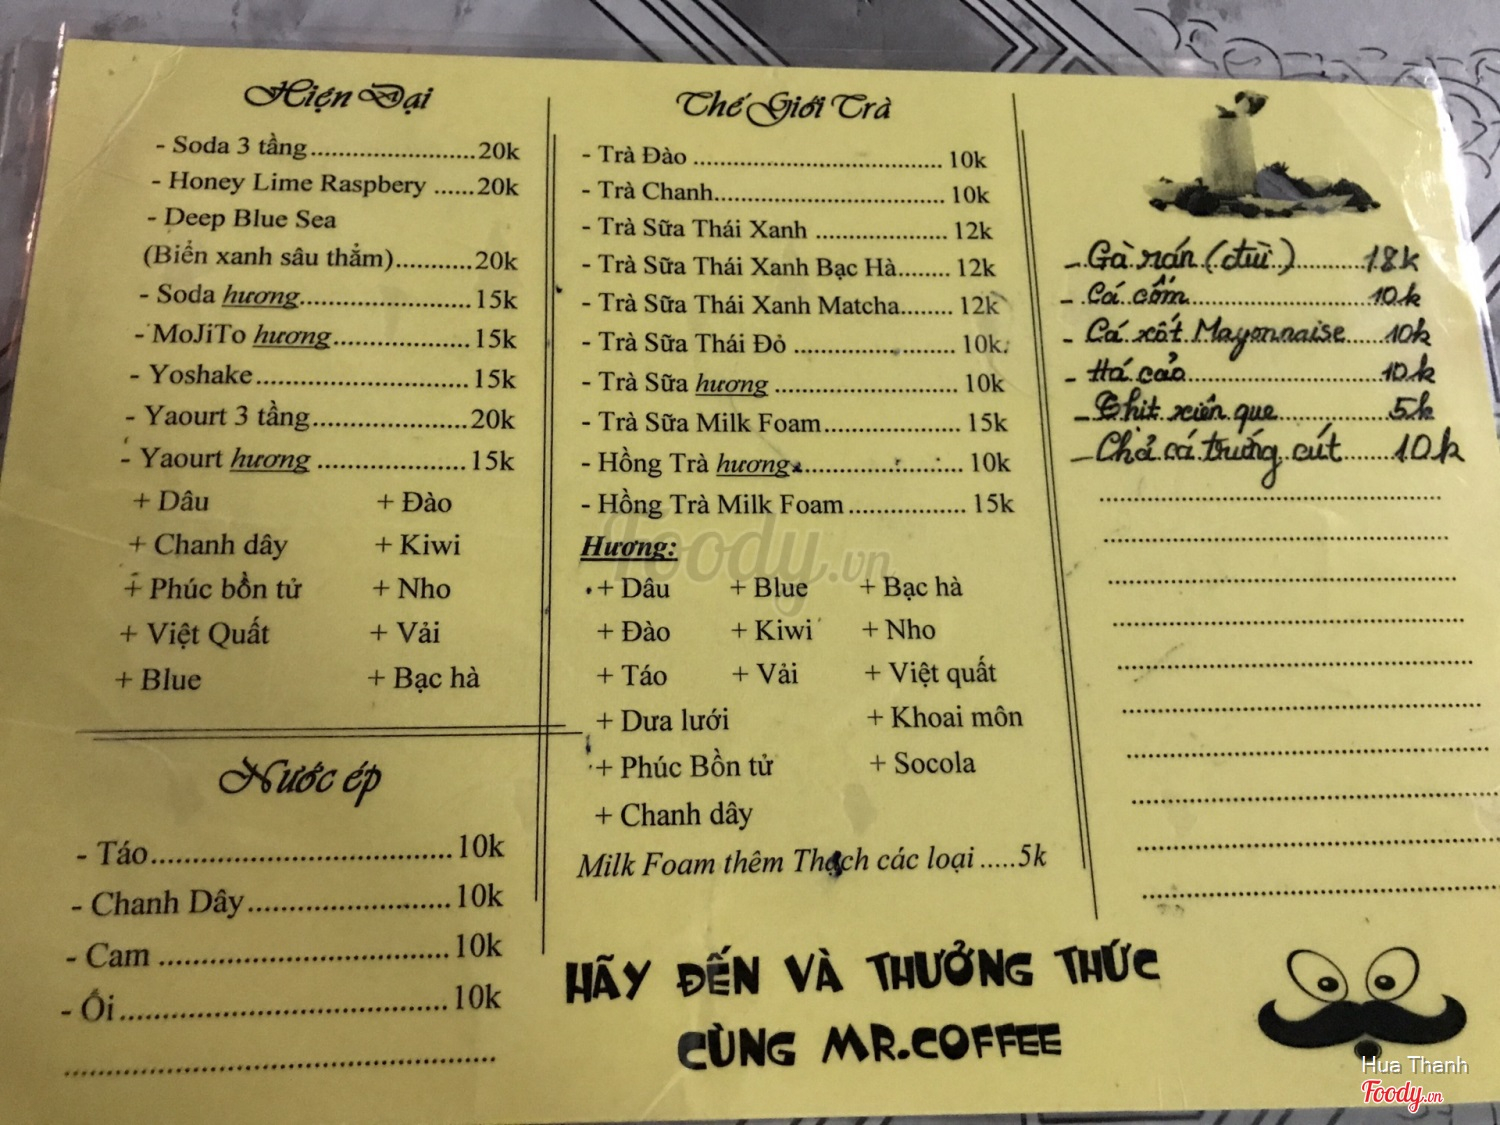 Hiện Đại
- Soda 3 tầng........................20k
- Honey Lime Raspbery ......20k
- Deep Blue Sea
(Biển xanh sâu thẳm)...........20k
- Soda hương.........................15k
- MoJiTo hương....................15k
- Yoshake...............................15k
- Yaourt 3 tầng......................20k
- Yaourt hương .....................15k
+ Dâu + Đào
+ Chanh dây + Kiwi
+ Phúc bồn tử + Nho
+ Việt Quất + Vải
+ Blue + Bạc hà
Nước ép
- Táo.....................................10k
- Chanh Dây.........................10k
- Cam ...................................10k
- Ổi.......................................10k
Thế Giới Trà
- Trà Đào ................................... 10k
- Trà Chanh................................. 10k
- Trà Sữa Thái Xanh ................... 12k
- Trà Sữa Thái Xanh Bạc Hà........ 12k
- Trà Sữa Thái Xanh Matcha........ 12k
- Trà Sữa Thái Đỏ ....................... 10k
- Trà Sữa hương .......................... 10k
- Trà Sữa Milk Foam.................... 15k
- Hồng Trà hương........................ 10k
- Hồng Trà Milk Foam................. 15k
Hương:
+ Dâu + Blue + Bạc hà
+ Đào + Kiwi + Nho
+ Táo + Vải + Việt quất
+ Dưa lưới + Khoai môn
+ Phúc Bồn tử + Socola
+ Chanh dây
Milk Foam thêm Thạch các loại .....5k
- Gà rán (đùi)..........18k
- Cá cốm..........10k
- Cá xốt Mayonnaise.....10k
- Há cảo..........10k
- Thịt xiên que..........5k
- Chả cá trứng cút......10k
HÃY ĐẾN VÀ THƯỞNG THỨC
CÙNG MR.COFFEE
Foody.vn
Hua Thanh
Foody.vn